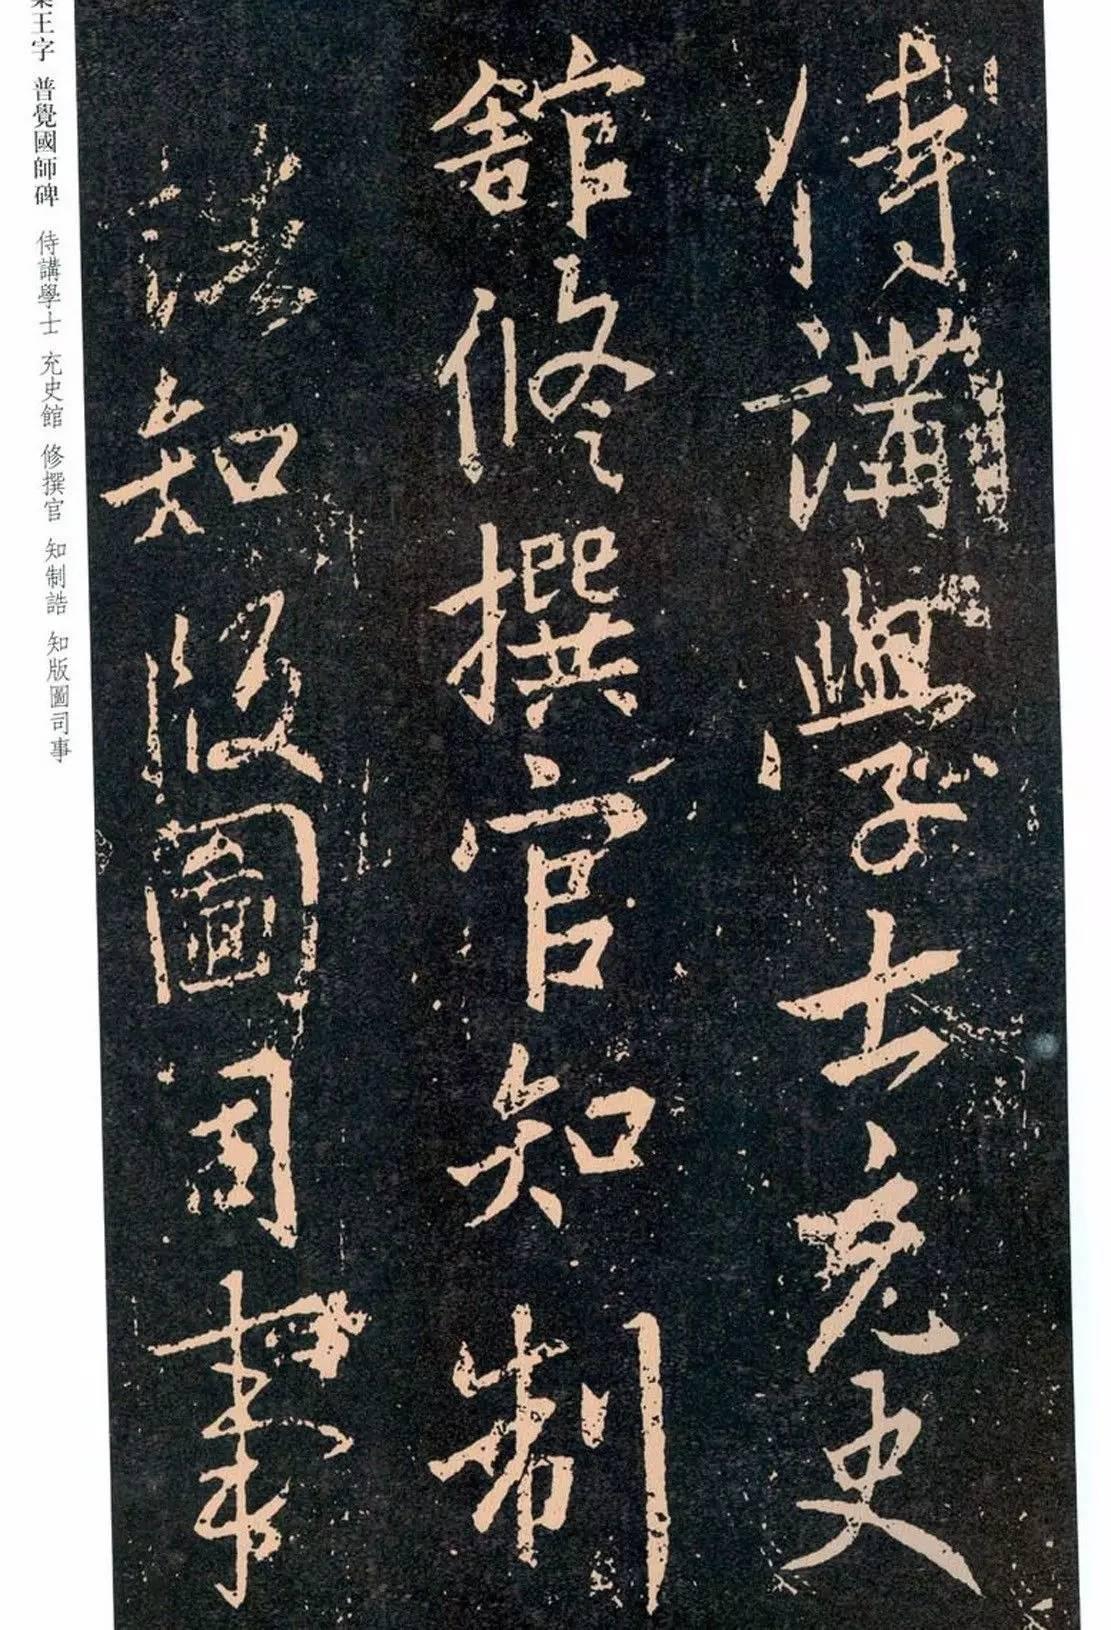 侍講學士充史
館修撰官知制
誥知版圖司事
集王字 普覺國師碑 侍講學士 充史館 修撰官 知制誥 知版圖司事